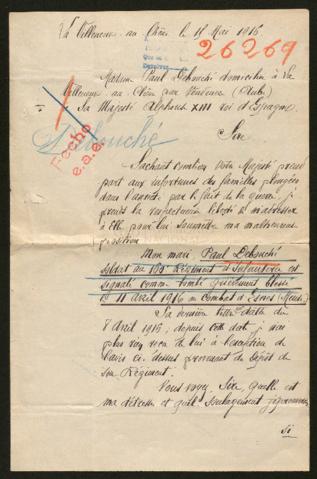 La Villeneuve au Chêne le 18 Mai 1916
26269
Madame Paul Debouché domiciliée à La
Villeneuve au Chêne par Vendeuvre (Aube)
à Sa Majesté Alphonse XIII roi d'Espagne.
Debouché
Fecho
e.a.e.
Sire
Sachant combien Votre Majesté prend
part aux infortunes des familles plongées
dans l'anxiété, par le fait de la guerre, je
prends la respectueuse liberté de m'adresser
à Elle pour lui soumettre ma malheureuse
position.
Mon mari Paul Debouché
soldat au Régiment d'Infanterie est
signalé comme tombé grièvement blessé
le 11 avril 1916 au Combat d'Esnes (Meuse)
Sa dernière lettre date du
8 Avril 1916; depuis cette date je n'ai
plus rien reçu de lui à l'exception de
l'avis ci-dessus provenant du dépôt de
son Régiment.
Vous voyez, Sire, quelle est
ma détresse et quel soulagement j'éprouverais
si